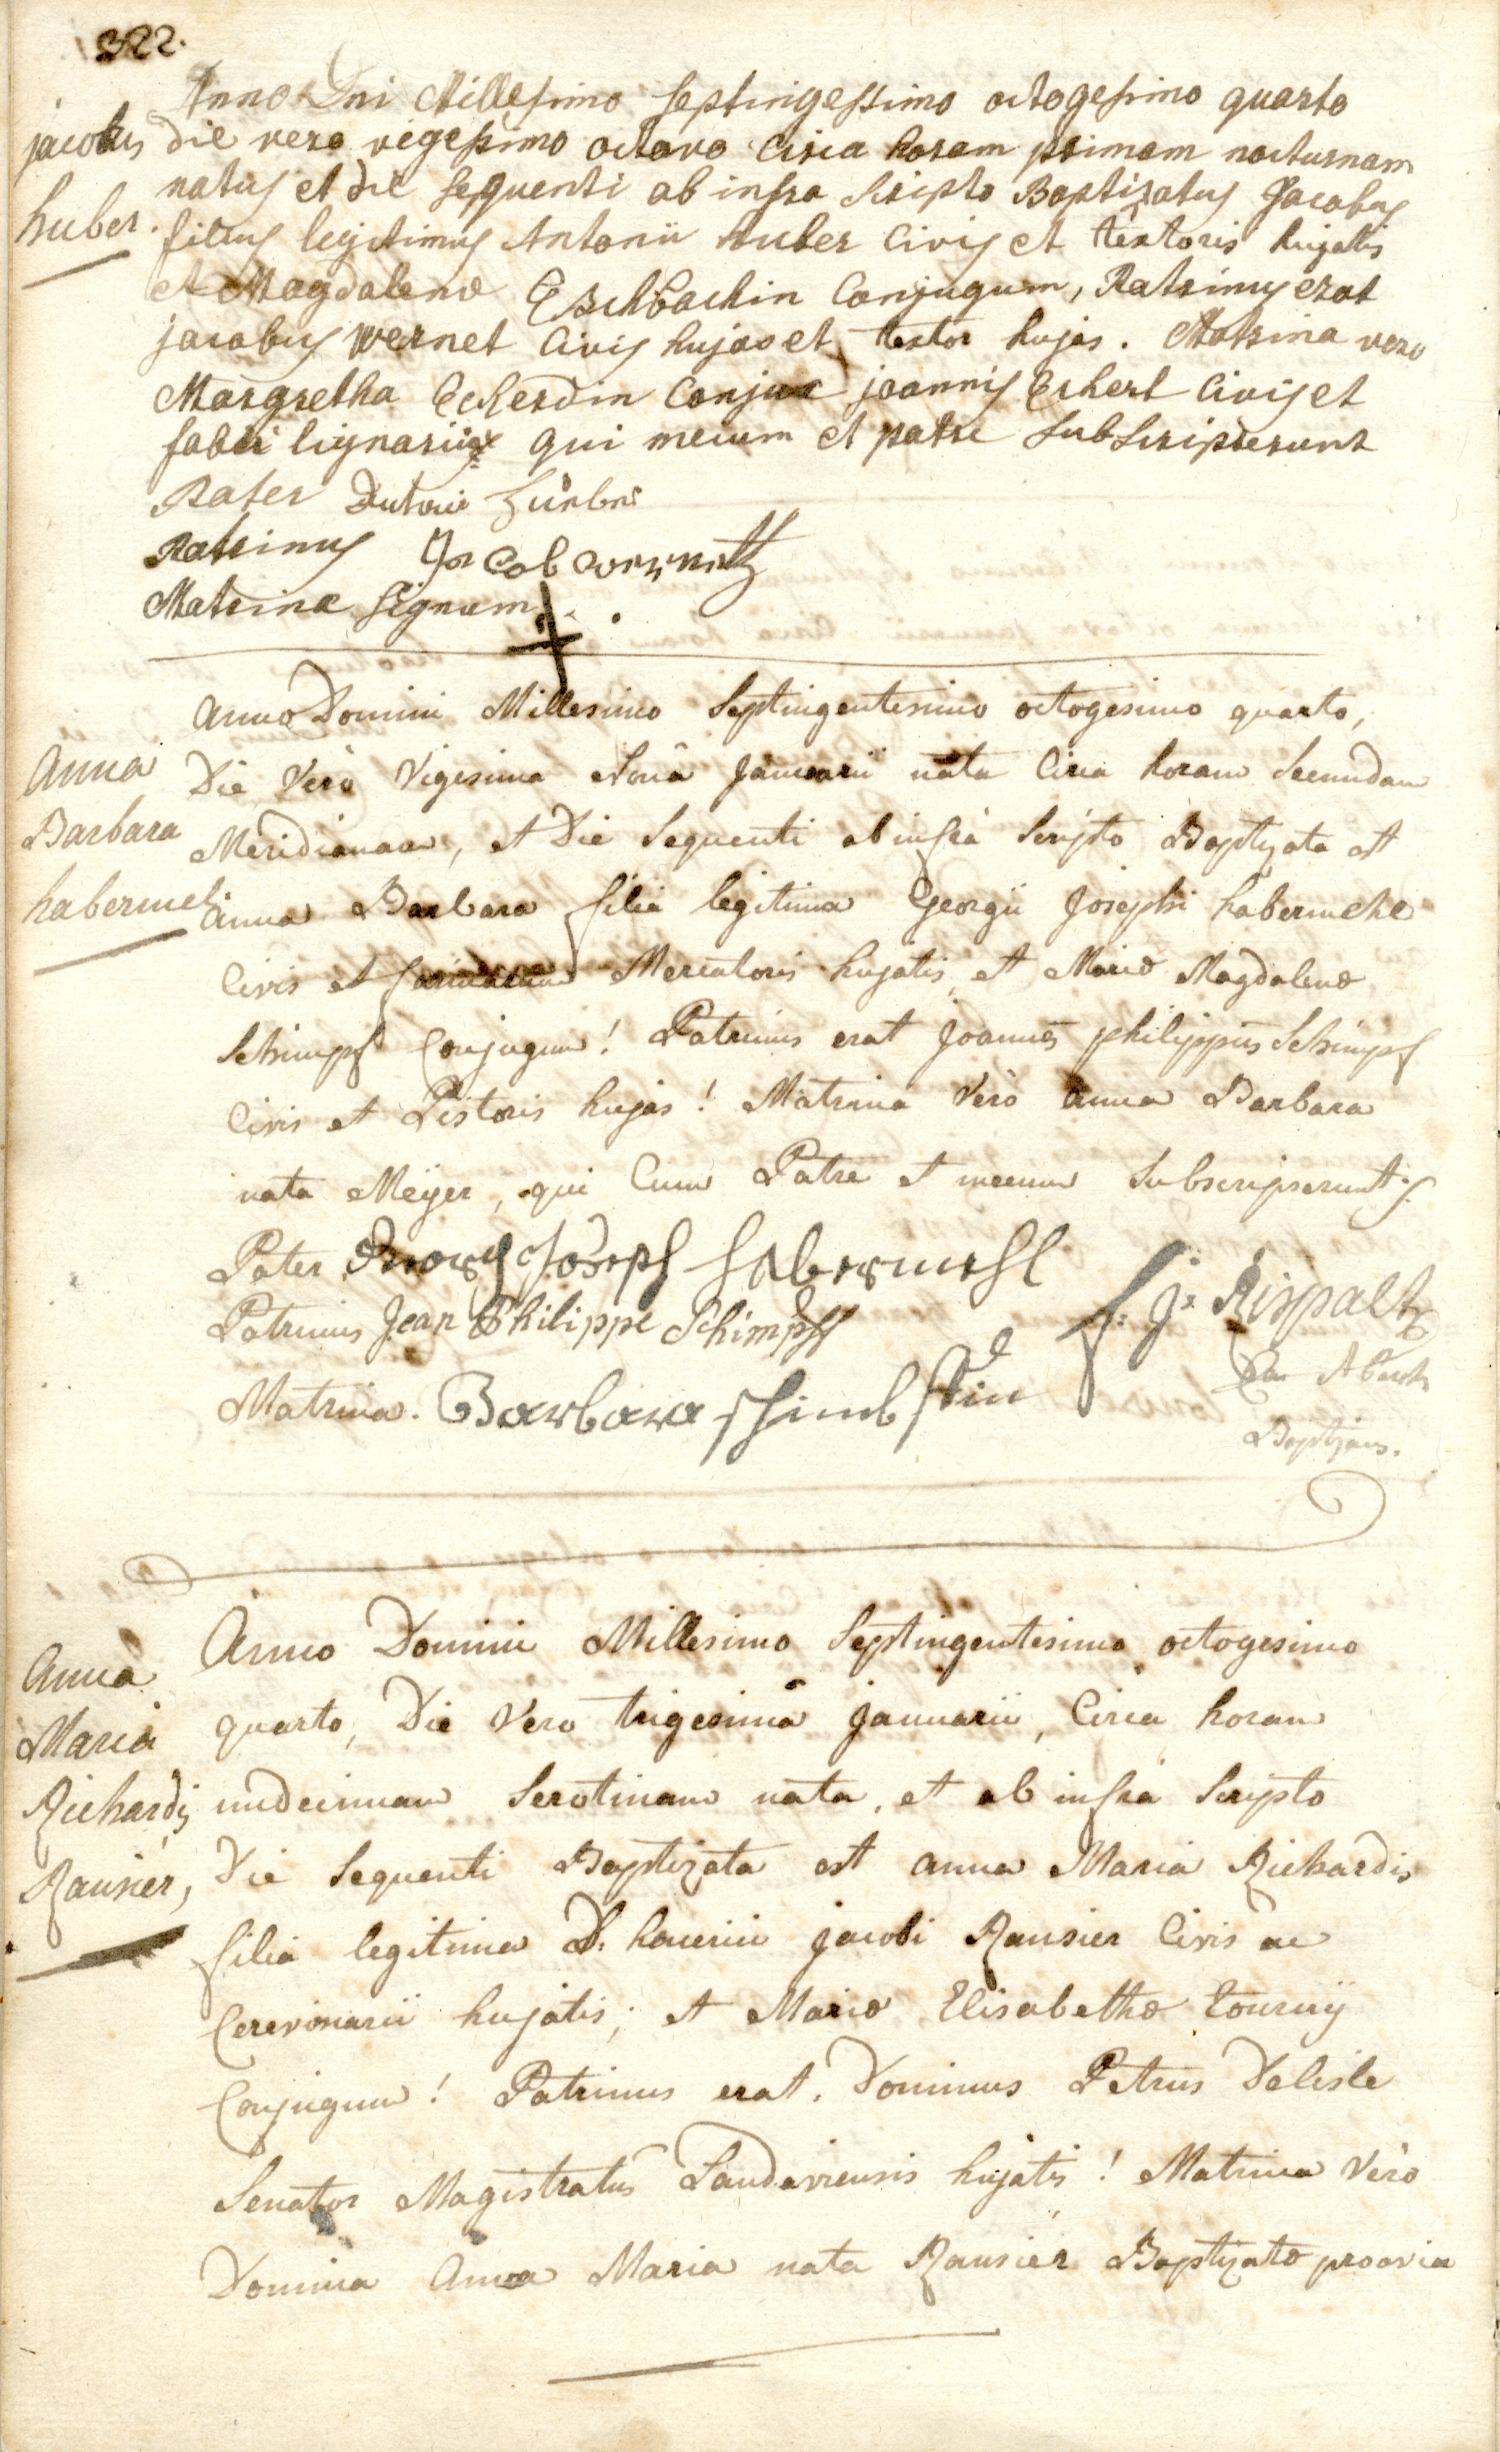 322.
Anno Dni Millesimo septingessimo octogesimo quarto
jacobus die vero vigesimo octavo circa horam primam nocturnam
natus et die sequenti ab infra scripto Baptizatus Jacobus
huber. filius legitimus Antonii Huber Civis et textoris hujatis
et Magdalenæ Eschbachin Conjugum, Patrinus erat
jacobus Wernet Civis hujas et textor hujas. Matrina vero
Margretha Eckerdin Conjux joannis Eckert Civis et
fabri lignarii qui mecum et patre subscripserunt
Pater Antoni Huber
Patrinus Jacob Wernet
Matrinæ signum
Anno Domini Millesimo Septingentesimo octogesimo quarto,
Anna Die Vero Vigesima Nona Januarii nata Circa horam Secundam
Barbara Meridianam, et Die Sequenti ab infrà Scripto Baptizata est
habermehl Anna Barbara filia legitima Georgii Josephi habermehl
Civis et Mercatoris hujatis, et Mariæ Magdalenæ
Schimpf Conjugum! Patrinus erat Joannes philippus Schimpf
Civis et Pistoris hujas! Matrina Vero Anna Barbara
nata Meÿer, qui Cum Patre et mecum Subscripserunt
Pater Georg Joseph Habermehl
Patrinus Jean Philippe Schimpff
F: J: Rispaltz
Matrina. Barbara schimbfin
Baptizans.
Anno Domini Millesimo Septingentesimo octogesimo
Anna
quarto, Die Vero trigesimâ Januarii, Circa horam
Maria
Richardis undecimam Serotinam nata, et ab infrà Scripto
Rausier, Die Sequenti Baptizata est Anna Maria Richardis
filia legitima D: Jacobi Rausier Civis ac
Cerevisiarii hujatis; et Mariæ Elisabethæ Tourny
Conjugum! Patrinus erat. Dominus Petrus Delisle
Senator Magistratûs Landaviensis hujatis! Matrina Vero
Domina Anna Maria nata Rausier Baptizatæ proavia